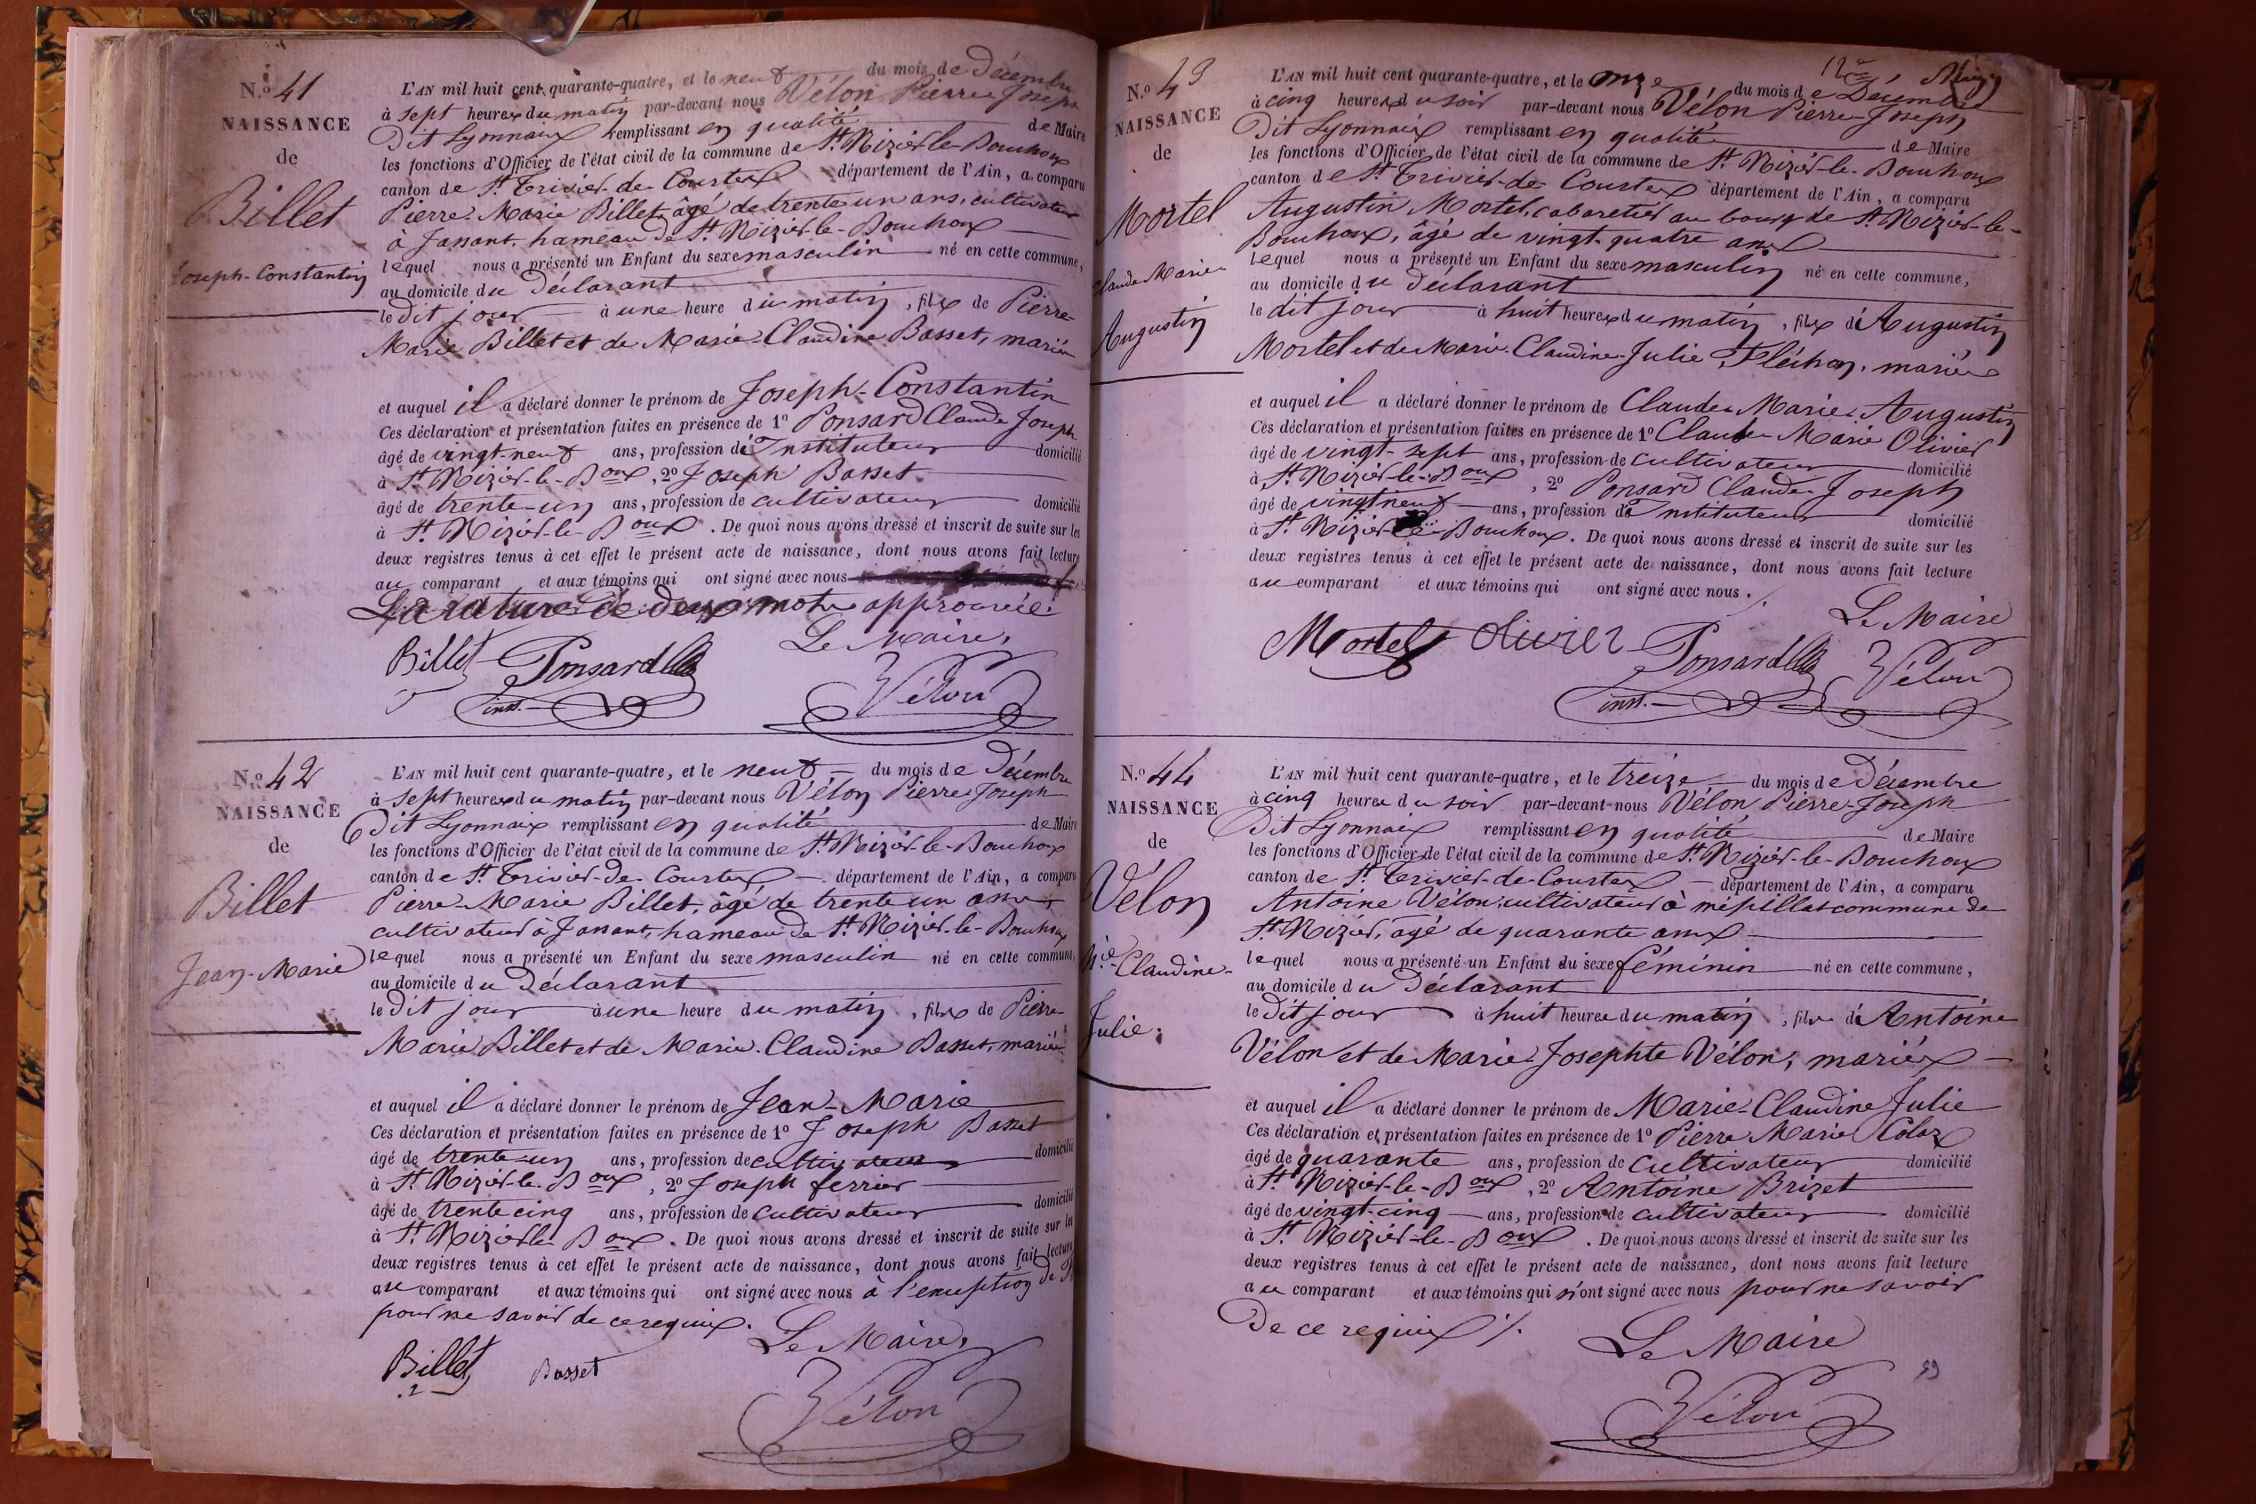 N.º 41
NAISSANCE
de
Billet
Joseph-Constantin
L'AN mil huit cent quarante-quatre, et le neuf du mois de Décembre
à sept heures du matin par-devant nous Vélon Pierre Joseph
Dit Lyonnais remplissant en qualité de Maire
les fonctions d'Officier de l'état civil de la commune de St. Nizier-le-Bouchoux
canton de St. Trivier-de-Courtes département de l'Ain, a comparu
Pierre-Marie Billet, âgé de trente un ans, cultivateur
à Jassant, hameau de St. Nizier-le-Bouchoux
lequel nous a présenté un Enfant du sexe masculin né en cette commune,
au domicile du Déclarant
le dit jour à une heure du matin, fils de Pierre
Marie Billet et de Marie-Claudine Basset, mariés
et auquel il a déclaré donner le prénom de Joseph-Constantin
Ces déclaration et présentation faites en présence de 1º Ponsard Claude Joseph
âgé de vingt-neuf ans, profession de Instituteur domicilié
à St. Nizier-le-Boux, 2º Joseph Basset
âgé de trente-un ans, profession de cultivateur domicilié
à St. Nizier-le-Boux. De quoi nous avons dressé et inscrit de suite sur les
deux registres tenus à cet effet le présent acte de naissance, dont nous avons fait lecture
au comparant et aux témoins qui ont signé avec nous
La rature de deux mots approuvée.
Le Maire,
Billet Ponsard Vélon
inst.
N.º 42
NAISSANCE
de
Billet
Jean-Marie
L'AN mil huit cent quarante-quatre, et le neuf du mois de Décembre
à sept heures du matin par-devant nous Vélon Pierre Joseph
Dit Lyonnais remplissant en qualité de Maire
les fonctions d'Officier de l'état civil de la commune de St. Nizier-le-Bouchoux
canton de St. Trivier-de-Courtes département de l'Ain, a comparu
Pierre-Marie Billet, âgé de trente un ans
cultivateur à Jassant, hameau de St. Nizier-le-Bouchoux
lequel nous a présenté un Enfant du sexe masculin né en cette commune,
au domicile du Déclarant
le dit jour à une heure du matin, fils de Pierre
Marie Billet et de Marie-Claudine Basset, mariés
et auquel il a déclaré donner le prénom de Jean-Marie
Ces déclaration et présentation faites en présence de 1º Joseph Basset
âgé de trente-un ans, profession de cultivateur domicilié
à St. Nizier-le-Boux, 2º Joseph ferrier
âgé de trente cinq ans, profession de cultivateur domicilié
à St. Nizier-le-Boux. De quoi nous avons dressé et inscrit de suite sur les
deux registres tenus à cet effet le présent acte de naissance, dont nous avons fait lecture
au comparant et aux témoins qui ont signé avec nous à l'exception de
pour ne savoir de ce requis.
Le Maire,
Billet Basset
Vélon
N.º 43
NAISSANCE
de
Mortel
Claude Marie
Augustin
L'AN mil huit cent quarante-quatre, et le onze du mois de Décembre
à cinq heures du soir par-devant nous Vélon Pierre-Joseph
Dit Lyonnais remplissant en qualité de Maire
les fonctions d'Officier de l'état civil de la commune de St. Nizier-le-Bouchoux
canton de St. Trivier-de-Courtes département de l'Ain, a comparu
Augustin Mortel, cabaretier au bourg de St. Nizier-le-
Bouchoux, âgé de vingt-quatre ans
lequel nous a présenté un Enfant du sexe masculin né en cette commune,
au domicile du Déclarant
le dit jour à huit heures du matin, fils d'Augustin
Mortel et de Marie-Claudine-Julie Fléchon, mariés
et auquel il a déclaré donner le prénom de Claude-Marie-Augustin
Ces déclaration et présentation faites en présence de 1º Claude Marie Olivier
âgé de vingt-sept ans, profession de cultivateur domicilié
à St. Nizier-le-Boux, 2º Ponsard Claude-Joseph
âgé de vingt neuf ans, profession de Instituteur domicilié
à St. Nizier-le-Bouchoux. De quoi nous avons dressé et inscrit de suite sur les
deux registres tenus à cet effet le présent acte de naissance, dont nous avons fait lecture
au comparant et aux témoins qui ont signé avec nous.
Le Maire
Mortel Olivier Ponsard Vélon
inst.
N.º 44
NAISSANCE
de
Vélon
M.ie Claudine-
Julie.
L'AN mil huit cent quarante-quatre, et le treize du mois de Décembre
à cinq heures du soir par-devant nous Vélon Pierre-Joseph
Dit Lyonnais remplissant en qualité de Maire
les fonctions d'Officier de l'état civil de la commune de St. Nizier-le-Bouchoux
canton de St. Trivier-de-Courtes département de l'Ain, a comparu
Antoine Vélon, cultivateur à mépillat commune de
St. Nizier, âgé de quarante ans
lequel nous a présenté un Enfant du sexe féminin né en cette commune,
au domicile du Déclarant
le dit jour à huit heures du matin, fille d'Antoine
Vélon et de Marie-Josephte Vélon, mariés
et auquel il a déclaré donner le prénom de Marie-Claudine Julie
Ces déclaration et présentation faites en présence de 1º Pierre Marie
âgé de quarante ans, profession de cultivateur domicilié
à St. Nizier-le-Boux, 2º Antoine Brizet
âgé de vingt-cinq ans, profession de cultivateur domicilié
à St. Nizier-le-Boux. De quoi nous avons dressé et inscrit de suite sur les
deux registres tenus à cet effet le présent acte de naissance, dont nous avons fait lecture
au comparant et aux témoins qui n'ont signé avec nous pour ne savoir
De ce requis ./.
Le Maire
Vélon
59